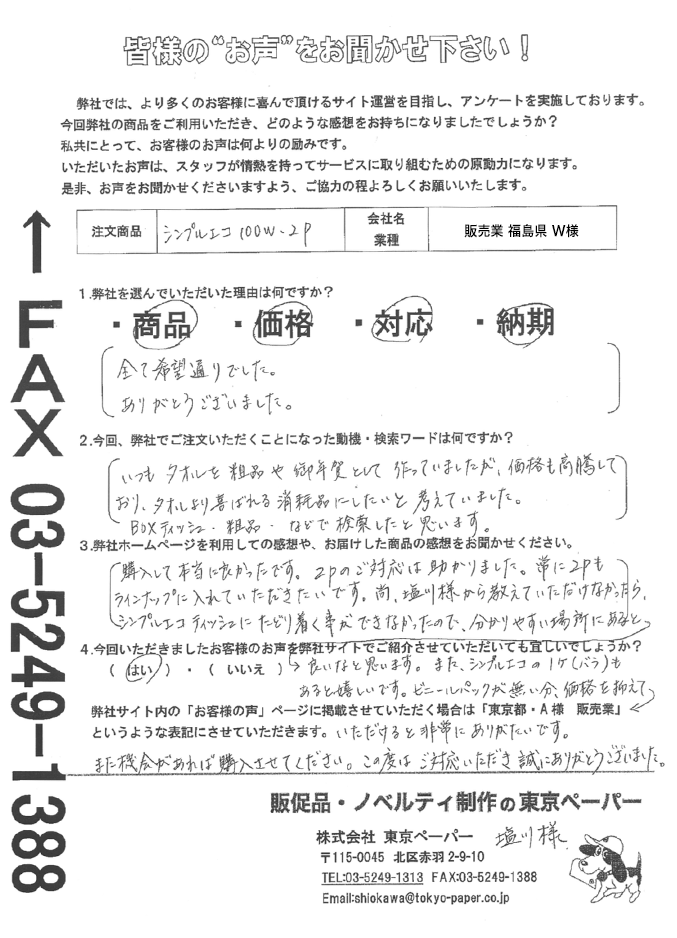 皆様の“お声”をお聞かせ下さい！
弊社では、より多くのお客様に喜んで頂けるサイト運営を目指し、アンケートを実施しております。
今回弊社の商品をご利用いただき、どのような感想をお持ちになりましたでしょうか？
私共にとって、お客様のお声は何よりの励みです。
いただいたお声は、スタッフが情熱を持ってサービスに取り組むための原動力になります。
是非、お声をお聞かせくださいますよう、ご協力の程よろしくお願いいたします。
注文商品 シンプルエコ100W-2P 会社名 業種 販売業 福島県 W様
1.弊社を選んでいただいた理由は何ですか？
・商品 ・価格 ・対応 ・納期
全て希望通りでした。
ありがとうございました。
2.今回、弊社でご注文いただくことになった動機・検索ワードは何ですか？
いつもタオルを粗品や御年賀として作っていましたが、価格も高騰して
おり、タオルより喜ばれる消耗品にしたいと考えていました。
BOXティッシュ・粗品・などで検索したと思います。
3.弊社ホームページを利用しての感想や、お届けした商品の感想をお聞かせください。
購入して本当に良かったです。2Pのご対応は助かりました。常に2Pも
ラインナップに入れていただきたいです。尚、塩川様から教えていただけなかったら、
シンプルエコティッシュにたどり着く事ができなかったので、分かりやすい場所にあると
4.今回いただきましたお客様のお声を弊社サイトでご紹介させていただいても宜しいでしょうか？
（ はい ）・（ いいえ ） 良いなと思います。また、シンプルエコの1ケ(バラ)も
あると嬉しいです。ビニールパックが無い分、価格を抑えて
弊社サイト内の「お客様の声」ページに掲載させていただく場合は「東京都・A様 販売業」
というような表記にさせていただきます。いただけると非常にありがたいです。
また機会があれば購入させてください。この度はご対応いただき誠にありがとうございました。
販促品・ノベルティ制作の東京ペーパー
株式会社 東京ペーパー 塩川様
〒115-0045 北区赤羽2-9-10
TEL:03-5249-1313 FAX:03-5249-1388
Email:shiokawa@tokyo-paper.co.jp
↑FAX 03-5249-1388